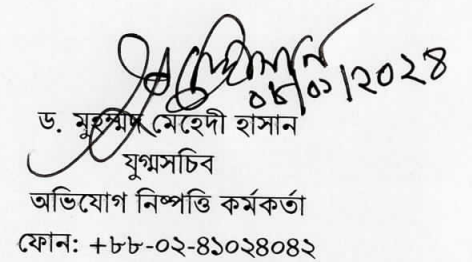 ০৪/০১/২০২৪
ড. মুহম্মদ মেহেদী হাসান
যুগ্মসচিব
অভিযোগ নিষ্পত্তি কর্মকর্তা
ফোন: +৮৮-০২-৪১০২৪০৪২